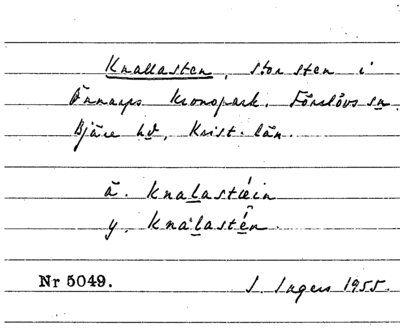 Knallasten, stor sten i
Önnarps Kronopark, Förslövs sn.
Bjäre hd, Krist. län.
ä. knalastæin
y. knalastén
Nr 5049. I. Ingers 1955.